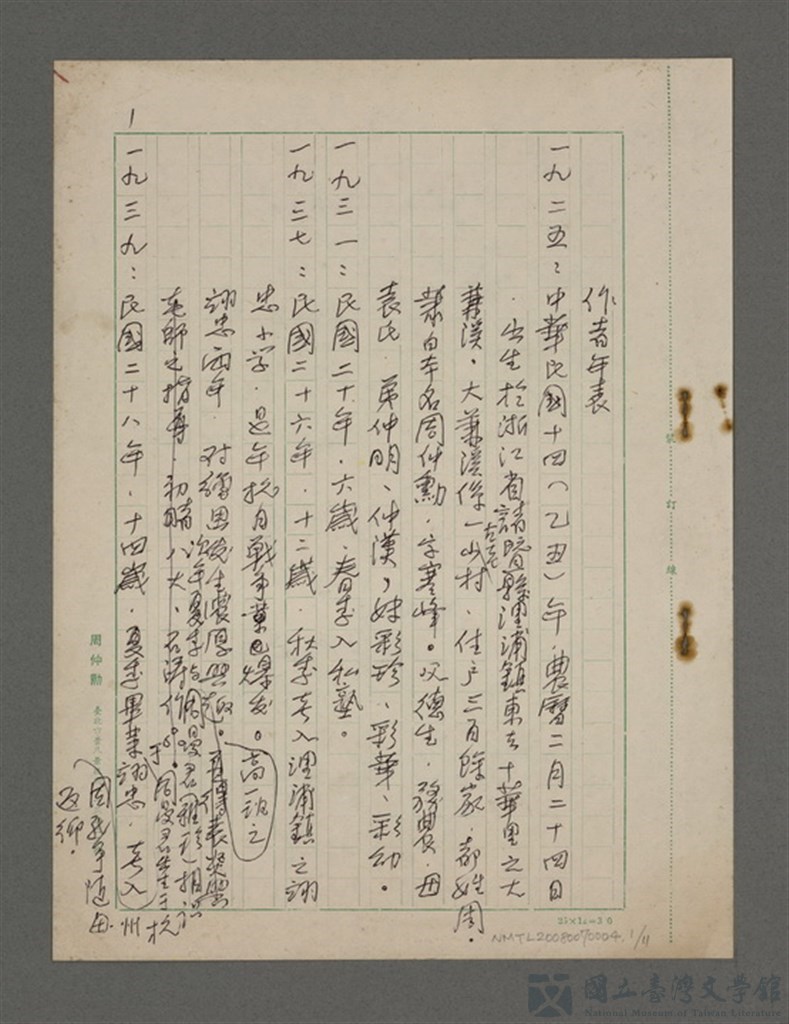 作者年表
一九二五：中華民國十四（乙丑）年，農曆二月二十四日
，出生於浙江省諸暨縣浬浦鎮東去十華里之大
兼溪。大兼溪係一古老山村，住戶三百餘家，都姓周。
棄白本名周仲勳，字寒峰。父德生，務農，母
袁氏，弟仲明、仲漢，妹彩珍、彩華、彩幼。
一九三一：民國二十年，六歲，春季入私塾。
一九三七：民國二十六年，十二歲，秋季考入浬浦鎮之翊
忠小學，是年抗日戰爭業已爆發。
高一班之
翊忠兩年，對繪畫發生濃厚興趣。
次年夏季與周曼君（雅珍）相識
老師之指導，初臨八大、石濤作品。
周曼君出生于杭
州
一九三九：民國二十八年，十四歲，夏季畢業翊忠，考入
因戰爭隨母
返鄉。
1
周仲勳
裝訂線
25×12=30
NMTL20080070004, 1/11
國立臺灣文學館
National Museum of Taiwan Literature